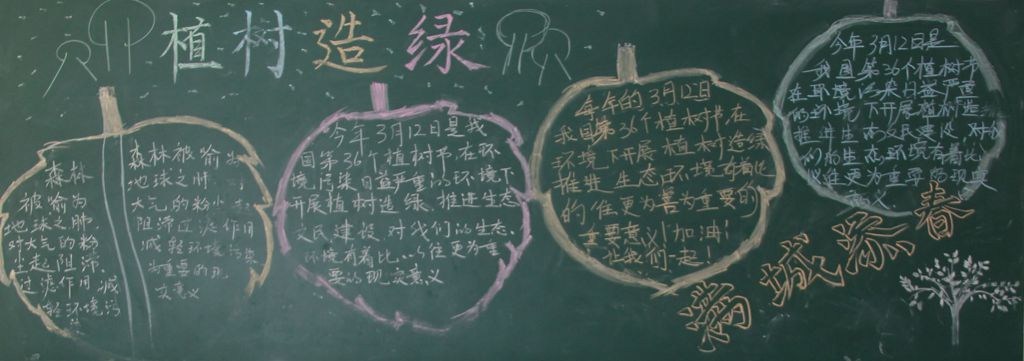 植树造绿
森林
被喻为
地球之肺
对大气的粉
尘起阻滞
过滤作用,减
轻环境污
森林被喻为
地球之肺
大气的粉小尘
阻滞过滤作用
减轻环境污染
为重要的现
实意义
今年3月12日是我
国第36个植树节,在环
境污染日益严重的环境下
开展植树造绿,推进生态
文民建设,对我们的生态
环境有着比以住更为重
要的现实意义
每年的3月12日
我国第36个植树节,在
环境下开展植树造绿
推进生态由环境有着比
的住更为善为重要的
重要意义!加油!
让我们一起!
今年3月12日是
我国第36个植树节
在环境污染日益严重
的环境下开展植树造
推进生态文民建设,对我
们的生态环境有着比
以住更为重要的现实
意义
满城添春